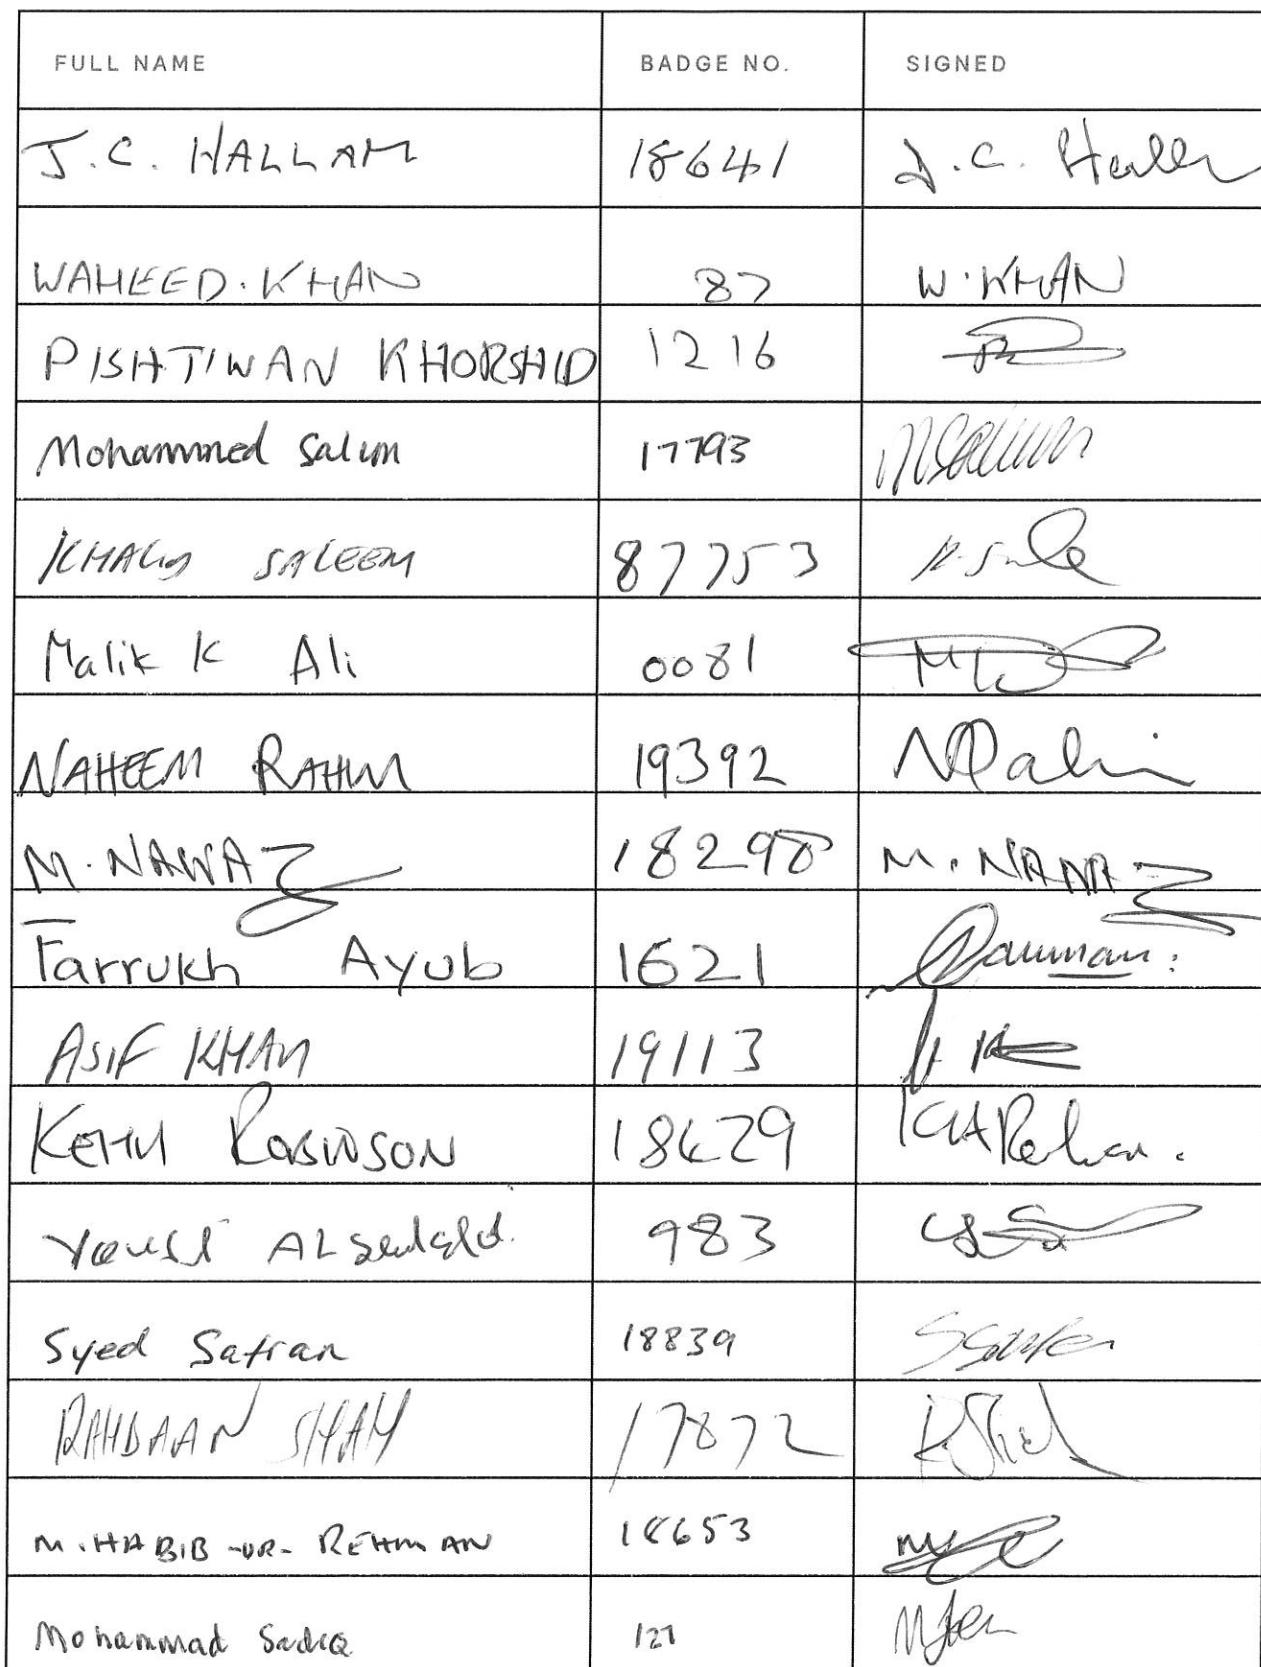 FULL NAME BADGE NO. SIGNED
J.C. HALLAM 18641 J.C. Hall
WAHEED. KHAN 87 W. KHAN
PISHTIWAN KHORSHID 1216
Mohammed Salim 17793 MSalim
KHALID SALEEM 87753
Malik K Ali 0081
NAHEEM RAHIM 19392 NRahim
M. NAWAZ 18298 M. NAWAZ
Farrukh Ayub 1621
ASIF KHAN 19113
KEITH ROBINSON 18629
983
Syed Safran 18839
RAHDAAN SHAH 17872 R Shah
M. HABIB -UR- REHMAN 18653
Mohammad Sadiq 127